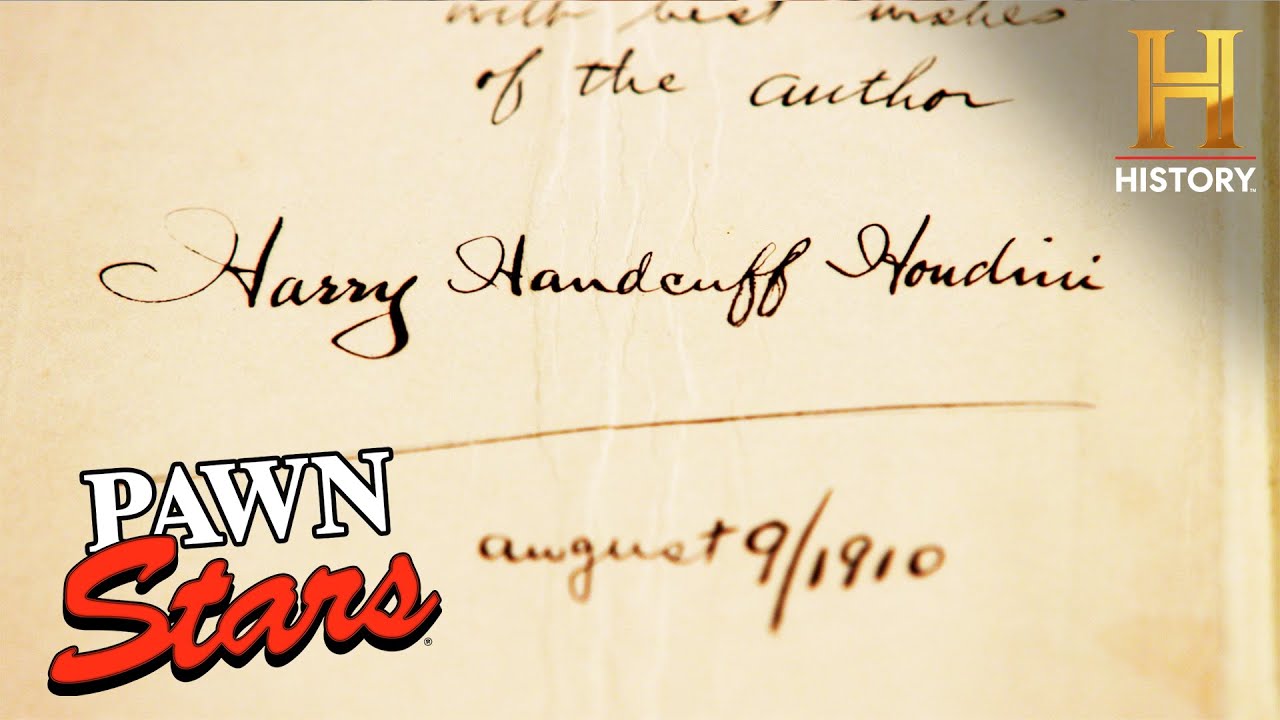 with best wishes
of the author
H
HISTORY
Harry Handcuff Houdini
PAWN
Stars
august 9/1910